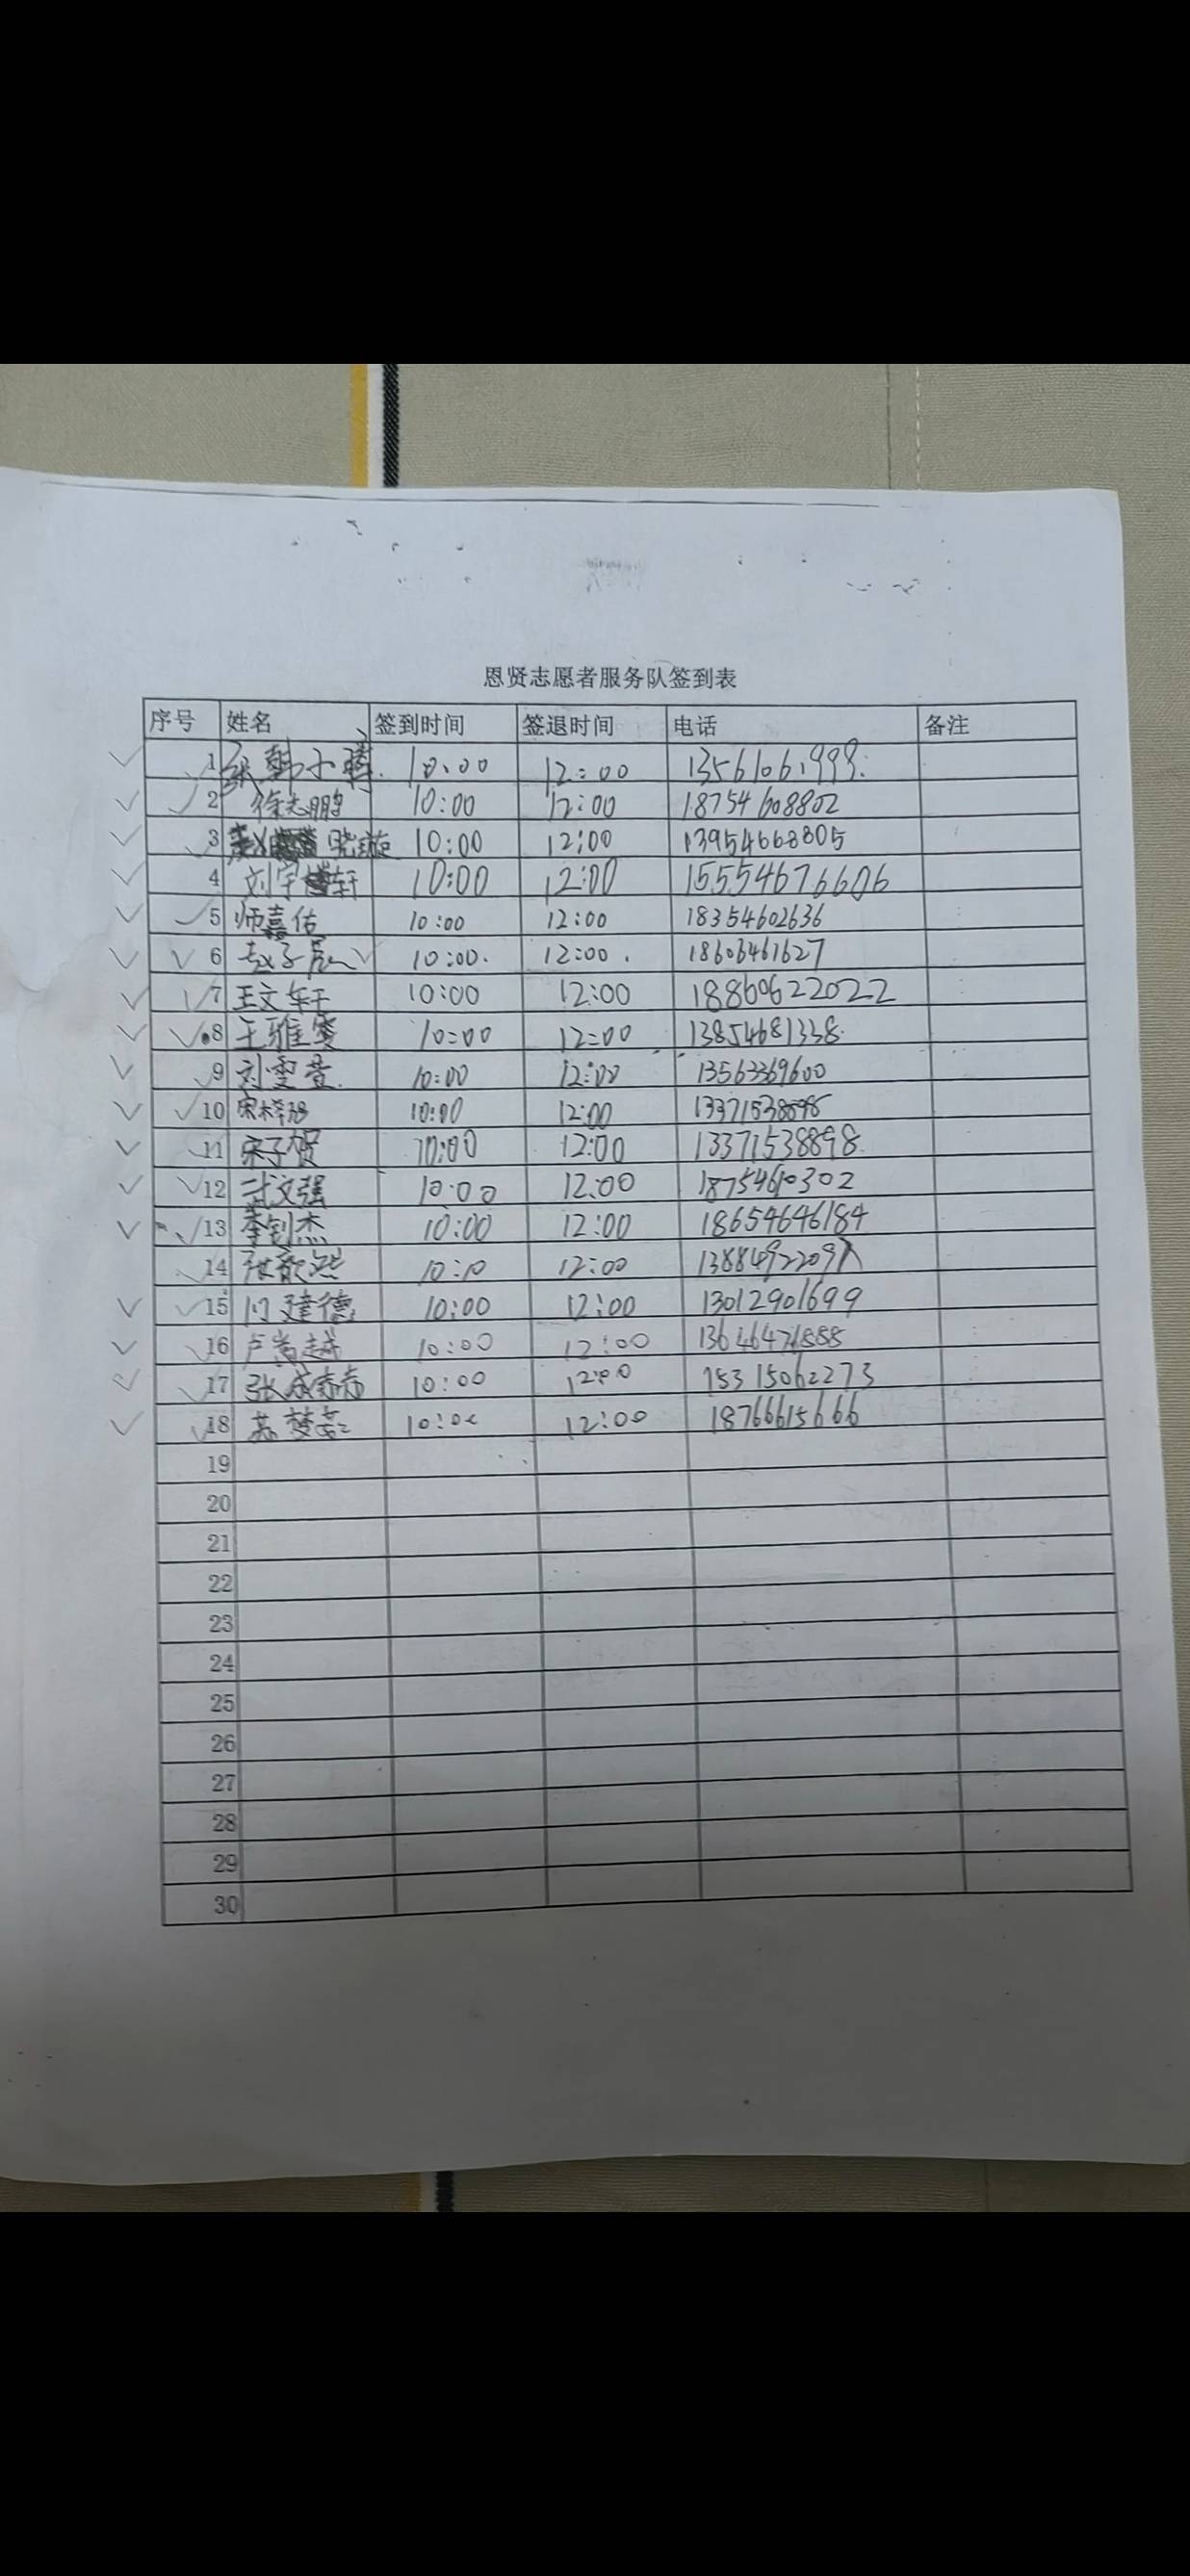 恩贤志愿者服务队签到表
序号 姓名 签到时间 签退时间 电话 备注
1 张韩小腾 10:00 12:00
2 徐志鹏 10:00 12:00 18754608802
3 晓璇 10:00 12:00 13954668805
4 刘宇轩 10:00 12:00 15554676606
5 师嘉佑 10:00 12:00 18354602636
6 赵子辰 10:00 12:00 18606461627
7 王文轩 10:00 12:00 18860622022
8 王雅雯 10:00 12:00 13854681338
9 刘雯萱 10:00 12:00 13563369600
10 10:00 12:00
11 宋子贤 10:00 12:00 13371538898
12 武文强 10:00 12:00 18754610302
13 李钊杰 10:00 12:00 18654646184
14 张歆然 10:10 12:00
15 闫建德 10:00 12:00 13012901699
16 卢尚越 10:00 12:00
17 10:00 12:00 15315062273
18 10:00 12:00 18766615666
19
20
21
22
23
24
25
26
27
28
29
30